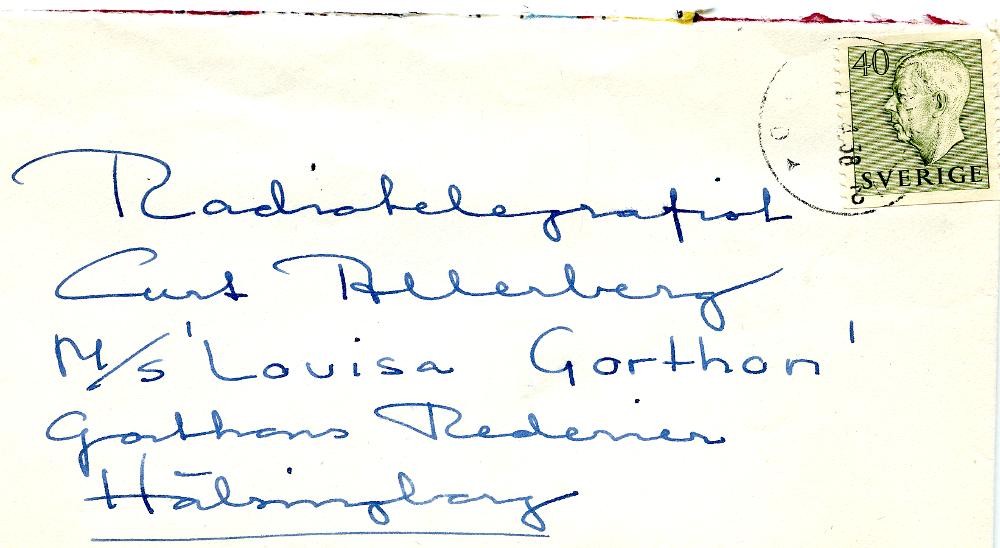 40
SVERIGE
DA
Radiotelegrafist
Curt Allerberg
M/s 'Lovisa Gorthon'
Gorthons Rederier
Hälsingborg